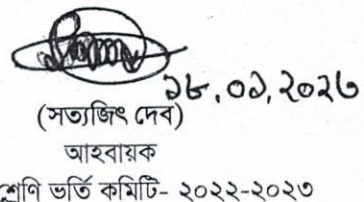 ১৮.০১.২০২৩
(সত্যজিৎ দেব)
আহবায়ক
শ্রেণি ভর্তি কমিটি- ২০২২-২০২৩